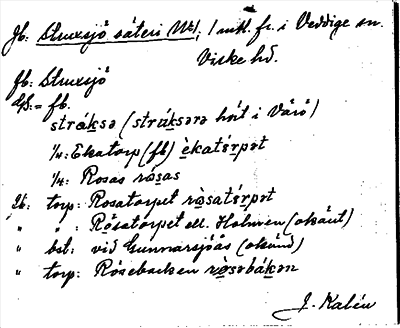 Jb. Struxsjö säteri № 1, 1 mtl. fr. i Veddige sn.
Viske hd.
fb. Struxsjö
Df. = fb.
stráksə (strúksərə hört i Värö)
1/4: Ekatorp (fb) èkatérpət
1/4: Rosas ròsas
Jb: torp: Rosatorpet ròsatérpət
" " : Rosatorpet ell. Holmen (okänt)
" bst: vid Gunnarsjöås (okänd)
" torp: Rösebacken ròsəbákən
J. Kalén